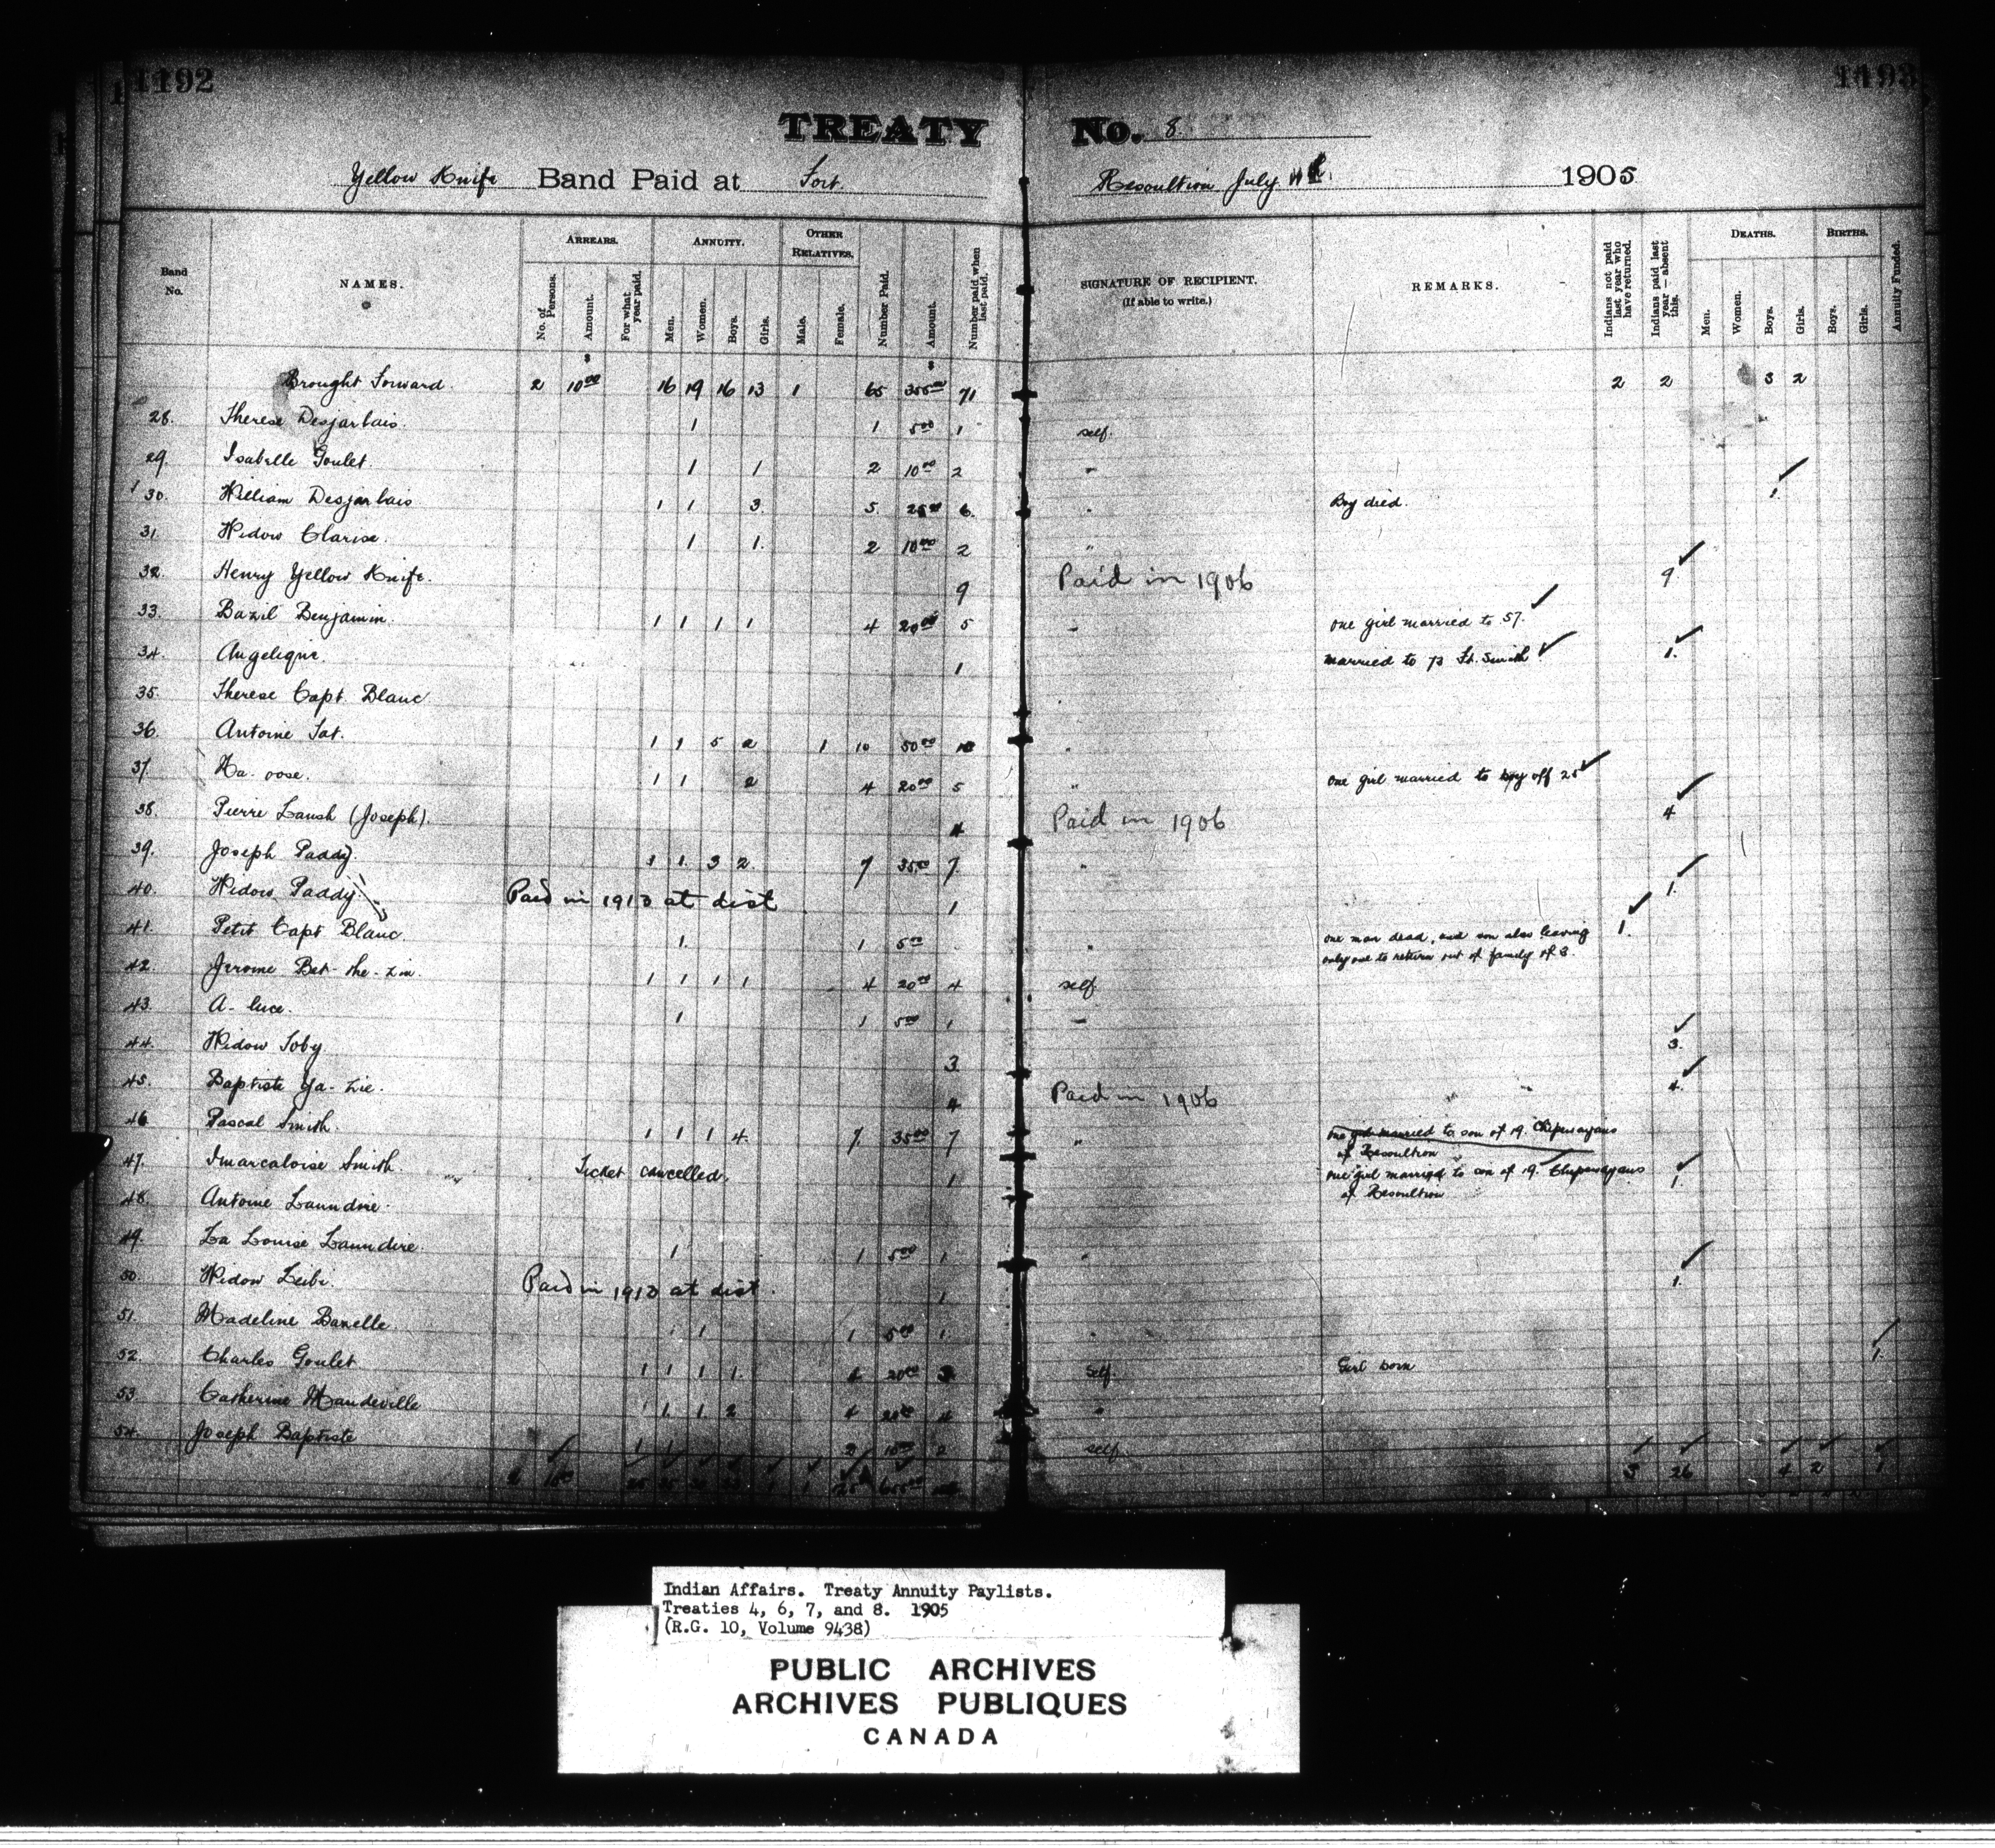 1192
1193
TREATY No. 8.
Yellow Knife Band Paid at Fort Resoultion July 1905
Band No.
NAMES.
ARREARS.
No. of Persons.
Amount.
For what year paid.
ANNUITY.
Men.
Women.
Boys.
Girls.
OTHER RELATIVES.
Male.
Female.
Number Paid.
Amount.
Number paid when last paid.
SIGNATURE OF RECIPIENT.
(If able to write.)
REMARKS.
Indians not paid last year who have returned.
Indians paid last year—absent this.
DEATHS.
Men.
Women.
Boys.
Girls.
BIRTHS.
Boys.
Girls.
Annuity Funded.
Brought Forward 2 10 00 16 19 16 13 1 65 355 00 71 2 2 3 2
28. Therese Desjarlais. 1 1 5 00 1 self.
29. Isabelle Goulet. 1 1 2 10 00 2 "
30. William Desjarlais 1 1 3. 5. 25 00 6. " Boy died. 1.
31. Widow Clarise. 1 1. 2 10 00 2 "
32. Henry Yellow Knife. 9 Paid in 1906 9
33. Bazil Benjamin. 1 1 1 1 4 20 00 5 " one girl married to 57.
34. Angelique. 1 married to 73 Ft. Smith 1.
35. Therese Capt Blanc
36. Antoine Fat. 1 1 5 2 1 10 50 00 10 "
37. Ka-oose. 1 1 2 4 20 00 5 " One girl married to boy off 25
38. Pierre Laush (Joseph). 4 Paid in 1906 4
39. Joseph Paddy. 1 1. 3 2. 7 35 00 7. "
40. Widow Paddy. Paid in 1910 at dist 1 1.
41. Petit Capt Blanc. 1. 1 5 00 " one man dead, and son also leaving 1.
only one to return out of family of 3.
42. Jerome Bet-the-zin. 1 1 1 1 4 20 00 4 self
43. A-luce. 1 1 5 00 1 "
44. Widow Toby. 3. 3.
45. Baptiste Ya-zie. 4 Paid in 1906 4.
46 Pascal Smith. 1 1 1 4. 7. 35 00 7 " one girl married to son of 19. Chipewayans
of Resoultion
47. Imarcaloise Smith Ticket cancelled. 1 one girl married to son of 19. Chipewayans 1.
of Resoultion
48. Antoine Laundrie.
49. La Louise Laundrie. 1 1 5 00 1 "
50. Widow Leibi. Paid in 1910 at dist. 1 1.
51. Madeline Bazelle. 1 1 5 00 1. "
52. Charles Goulet 1 1 1 1. 4 20 00 3 self. Girl born 1.
53 Catherine Mandeville 1. 1. 2 4 20 00 4 "
54. Joseph Baptiste 1 1 2 10 00 2 self.
3 26 4 2 1
Indian Affairs. Treaty Annuity Paylists.
Treaties 4, 6, 7, and 8. 1905
(R.G. 10, Volume 9438)
PUBLIC ARCHIVES
ARCHIVES PUBLIQUES
CANADA